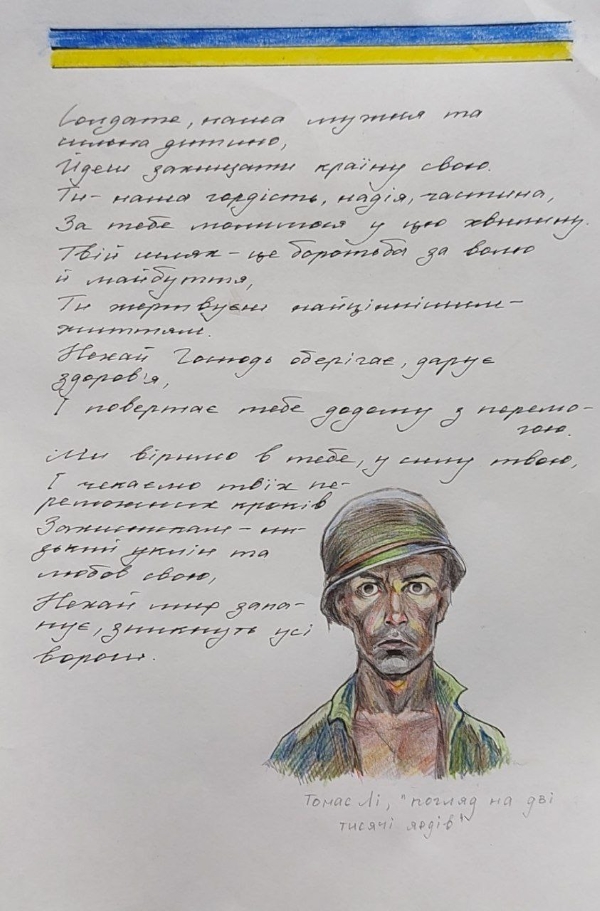 Солдате, наша мужня та
сильна дитино,
Йдеш захищати країну свою.
Ти - наша гордість, надія, частина,
За тебе молимося у цю хвилину.
Твій шлях - це боротьба за волю
й майбуття,
Ти жертвуєш найціннішим -
життям.
Нехай Господь оберігає, дарує
здоров'я,
І повертає тебе додому з перемо-
гою.
Ми віримо в тебе, у силу твою,
І чекаємо твоїх пе-
реможних кроків
Захисникам - ни-
зький уклін та
любов свою,
Нехай мир запа-
нує, зникнуть усі
вороги.
Томас Лі, "погляд на дві
тисячі ярдів"